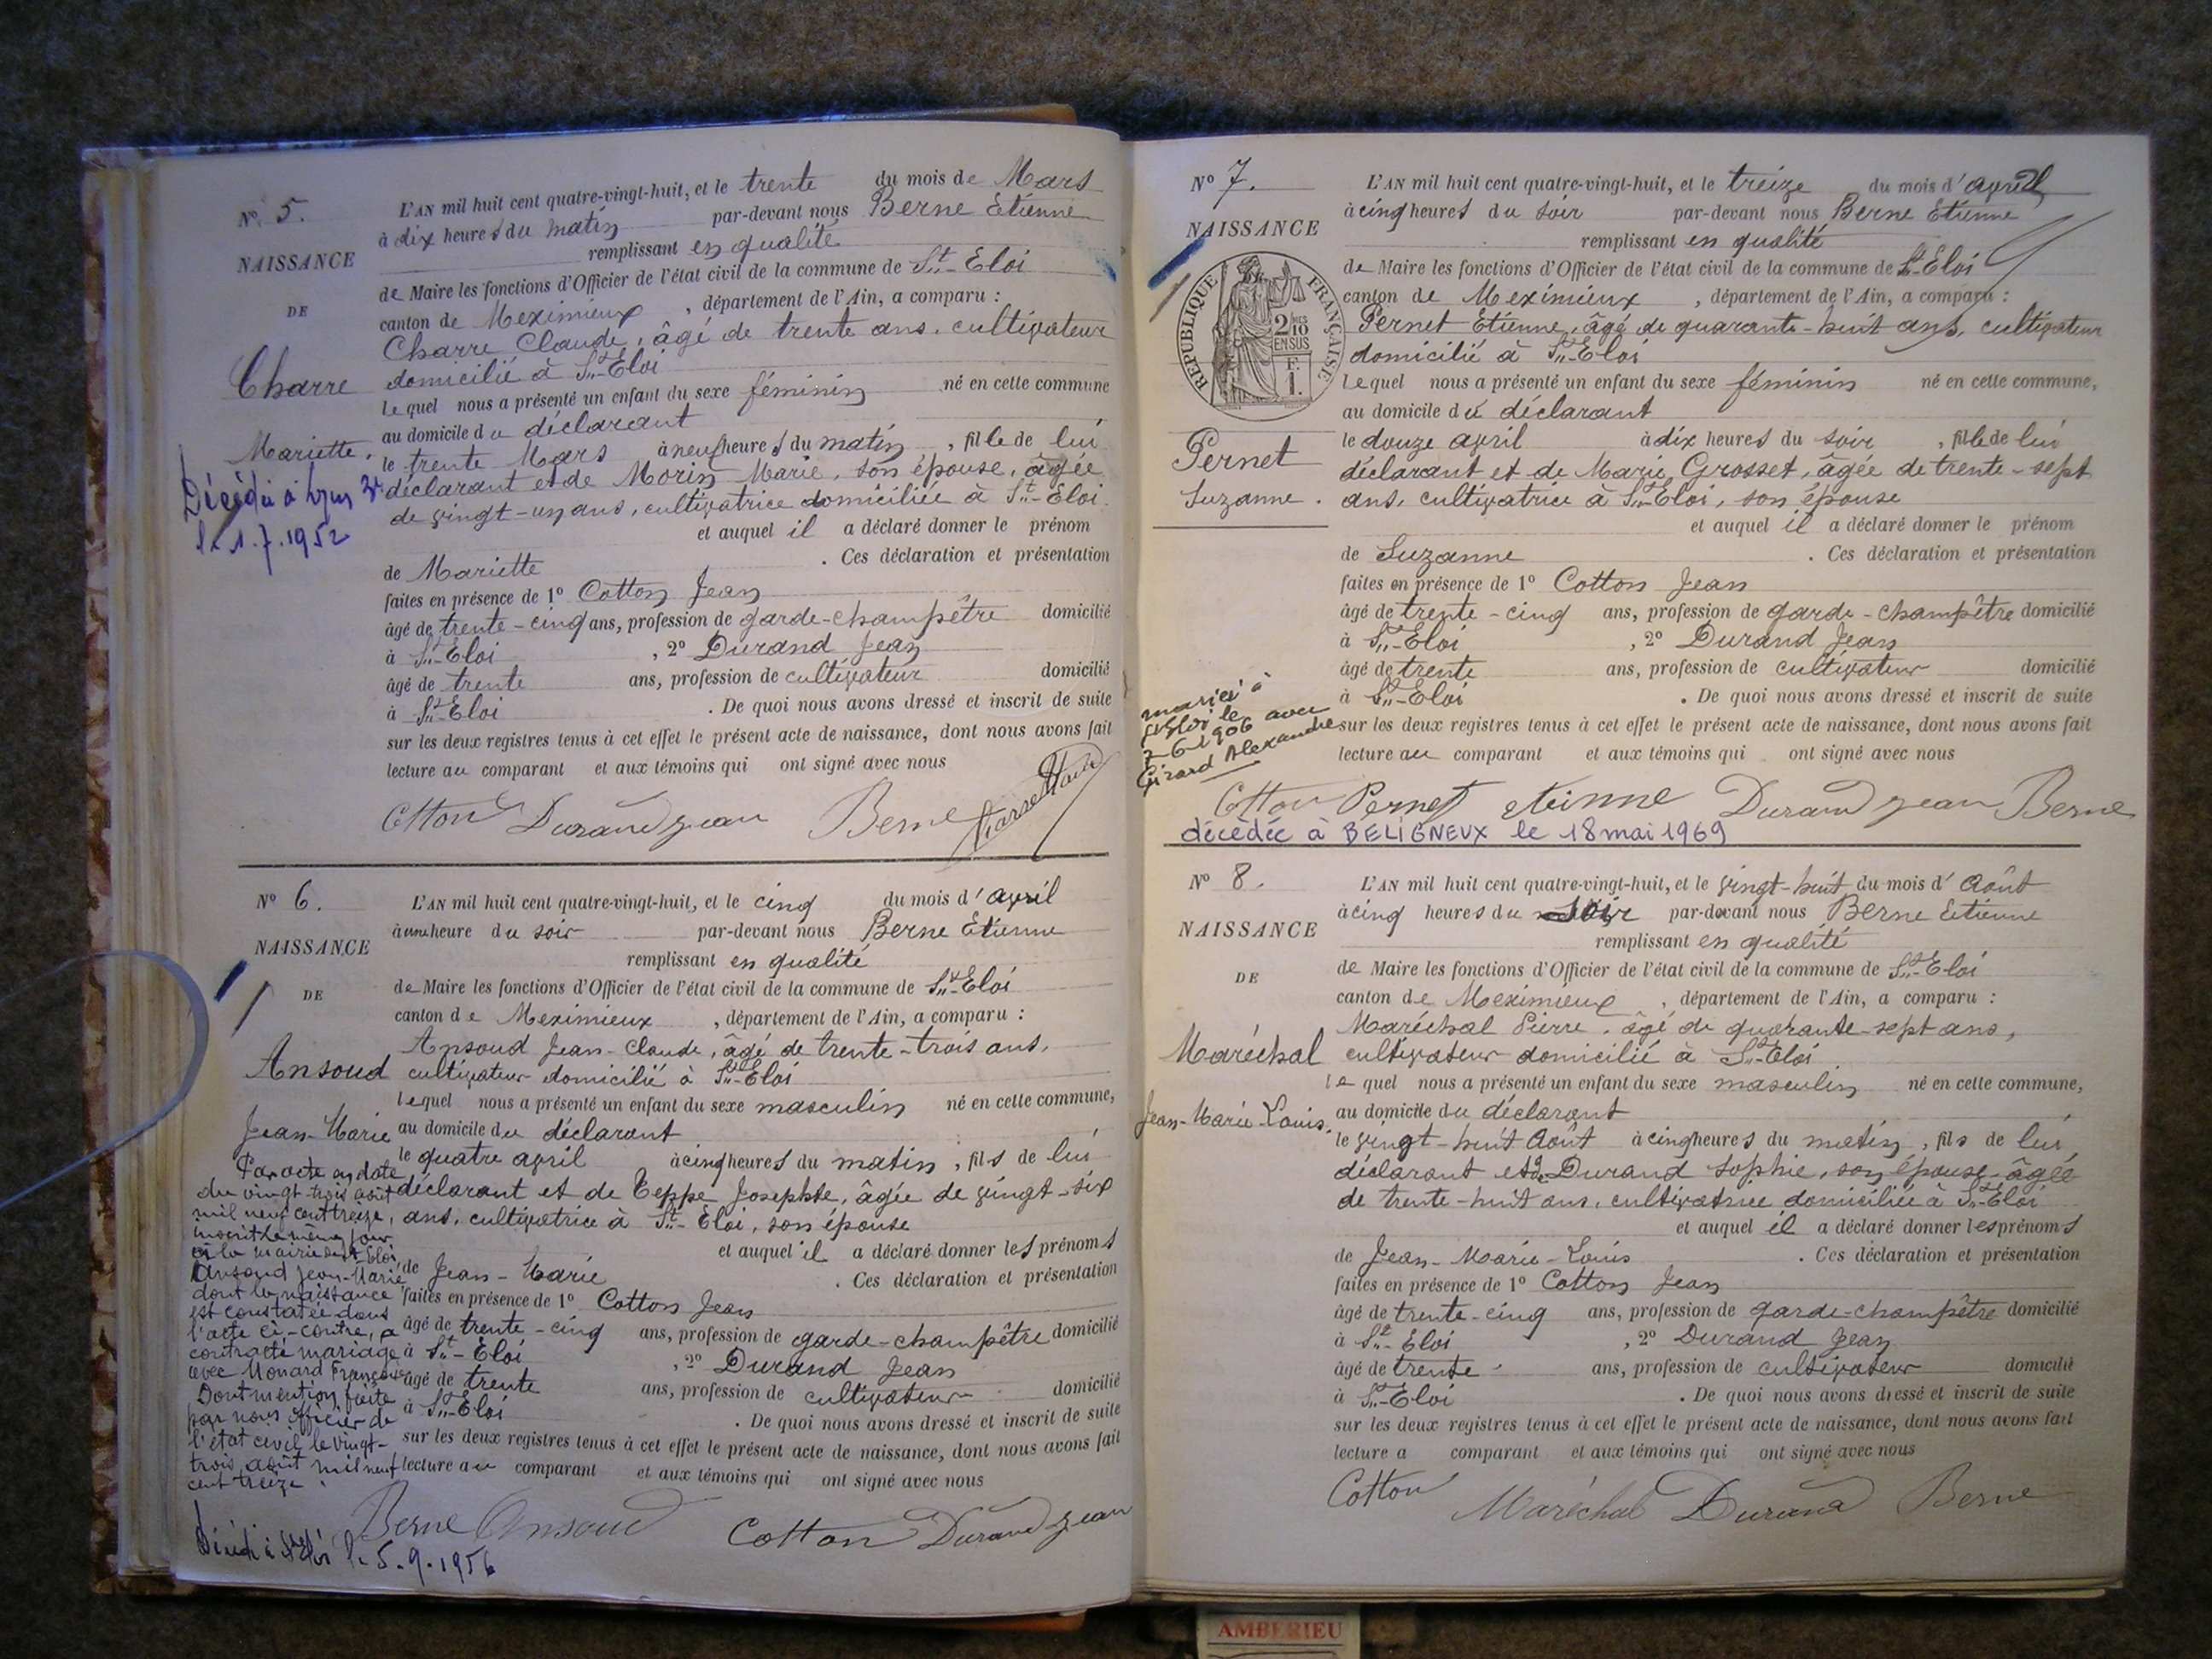 N° 5.
NAISSANCE
DE
Charre
Mariette.
Décédée à Lyon 3e
le 1.7.1952
L'AN mil huit cent quatre-vingt-huit, et le trente du mois de Mars
à dix heures du matin par-devant nous Berne Etienne
remplissant en qualité
de Maire les fonctions d'Officier de l'état civil de la commune de St-Eloi
canton de Meximieux, département de l'Ain, a comparu :
Charre Claude, âgé de trente ans, cultivateur
domicilié à St-Eloi
Lequel nous a présenté un enfant du sexe féminin né en cette commune
au domicile du déclarant
le trente Mars à neuf heures du matin, fille de lui
déclarant et de Morin Marie, son épouse, âgée
de vingt-un ans, cultivatrice domiciliée à St-Eloi.
et auquel il a déclaré donner le prénom
de Mariette. Ces déclaration et présentation
faites en présence de 1° Cotton Jean
âgé de trente-cinq ans, profession de garde-champêtre domicilié
à St-Eloi, 2° Durand Jean
âgé de trente ans, profession de cultivateur domicilié
à St-Eloi. De quoi nous avons dressé et inscrit de suite
sur les deux registres tenus à cet effet le présent acte de naissance, dont nous avons fait
lecture au comparant et aux témoins qui ont signé avec nous
Cotton Durand Jean Berne Charre Claude
N° 6.
NAISSANCE
DE
Ansoud
Jean-Marie
Par acte en date
du vingt-trois août
mil neuf cent treize,
inscrit le même jour
à la mairie de St Eloi,
Ansoud Jean-Marie
dont la naissance
est constatée dans
l'acte ci-contre, a
contracté mariage
avec Monard Françoise
Dont mention faite
par nous officier de
l'état civil le vingt-
trois août mil neuf
cent treize.
Décédé à St Eloi le 5.9.1956
L'AN mil huit cent quatre-vingt-huit, et le cinq du mois d'avril
à une heure du soir par-devant nous Berne Etienne
remplissant en qualité
de Maire les fonctions d'Officier de l'état civil de la commune de St-Eloi
canton de Meximieux, département de l'Ain, a comparu :
Ansoud Jean-Claude, âgé de trente-trois ans,
cultivateur domicilié à St-Eloi
lequel nous a présenté un enfant du sexe masculin né en cette commune,
au domicile du déclarant
le quatre avril à cinq heures du matin, fils de lui
déclarant et de Teppe Josephte, âgée de vingt-six
ans, cultivatrice à St-Eloi, son épouse
et auquel il a déclaré donner les prénoms
de Jean-Marie. Ces déclaration et présentation
faites en présence de 1° Cotton Jean
âgé de trente-cinq ans, profession de garde-champêtre domicilié
à St-Eloi, 2° Durand Jean
âgé de trente ans, profession de cultivateur domicilié
à St-Eloi. De quoi nous avons dressé et inscrit de suite
sur les deux registres tenus à cet effet le présent acte de naissance, dont nous avons fait
lecture au comparant et aux témoins qui ont signé avec nous
Berne Ansoud Cotton Durand Jean
N° 7.
NAISSANCE
REPUBLIQUE FRANÇAISE
2/10 MES
EN SUS
1 F.
Pernet
Suzanne.
mariée à
St Eloi le
2-6-1906 avec
Girard Alexandre
L'AN mil huit cent quatre-vingt-huit, et le treize du mois d'avril
à cinq heures du soir par-devant nous Berne Etienne
remplissant en qualité
de Maire les fonctions d'Officier de l'état civil de la commune de St-Eloi
canton de Meximieux, département de l'Ain, a comparu :
Pernet Etienne, âgé de quarante-huit ans, cultivateur
domicilié à St-Eloi
Lequel nous a présenté un enfant du sexe féminin né en cette commune,
au domicile du déclarant
le douze avril à dix heures du soir, fille de lui
déclarant et de Marie Grosset, âgée de trente-sept
ans, cultivatrice à St-Eloi, son épouse
et auquel il a déclaré donner le prénom
de Suzanne. Ces déclaration et présentation
faites en présence de 1° Cotton Jean
âgé de trente-cinq ans, profession de garde-champêtre domicilié
à St-Eloi, 2° Durand Jean
âgé de trente ans, profession de cultivateur domicilié
à St-Eloi. De quoi nous avons dressé et inscrit de suite
sur les deux registres tenus à cet effet le présent acte de naissance, dont nous avons fait
lecture au comparant et aux témoins qui ont signé avec nous
Cotton Pernet etienne Durand Jean Berne
décédée à BELIGNEUX le 18 mai 1969
N° 8.
NAISSANCE
DE
Maréchal
Jean-Marie-Louis.
L'AN mil huit cent quatre-vingt-huit, et le vingt-huit du mois d'Août
à cinq heures du soir par-devant nous Berne Etienne
remplissant en qualité
de Maire les fonctions d'Officier de l'état civil de la commune de St-Eloi
canton de Meximieux, département de l'Ain, a comparu :
Maréchal Pierre, âgé de quarante-sept ans,
cultivateur domicilié à St-Eloi
lequel nous a présenté un enfant du sexe masculin né en cette commune,
au domicile du déclarant
le vingt-huit Août à cinq heures du matin, fils de lui
déclarant et de Durand Sophie, son épouse, âgée
de trente-huit ans, cultivatrice domiciliée à St-Eloi
et auquel il a déclaré donner les prénoms
de Jean-Marie-Louis. Ces déclaration et présentation
faites en présence de 1° Cotton Jean
âgé de trente-cinq ans, profession de garde-champêtre domicilié
à St-Eloi, 2° Durand Jean
âgé de trente ans, profession de cultivateur domicilié
à St-Eloi. De quoi nous avons dressé et inscrit de suite
sur les deux registres tenus à cet effet le présent acte de naissance, dont nous avons fait
lecture a comparant et aux témoins qui ont signé avec nous
Cotton Maréchal Durand Berne
AMBERIEU